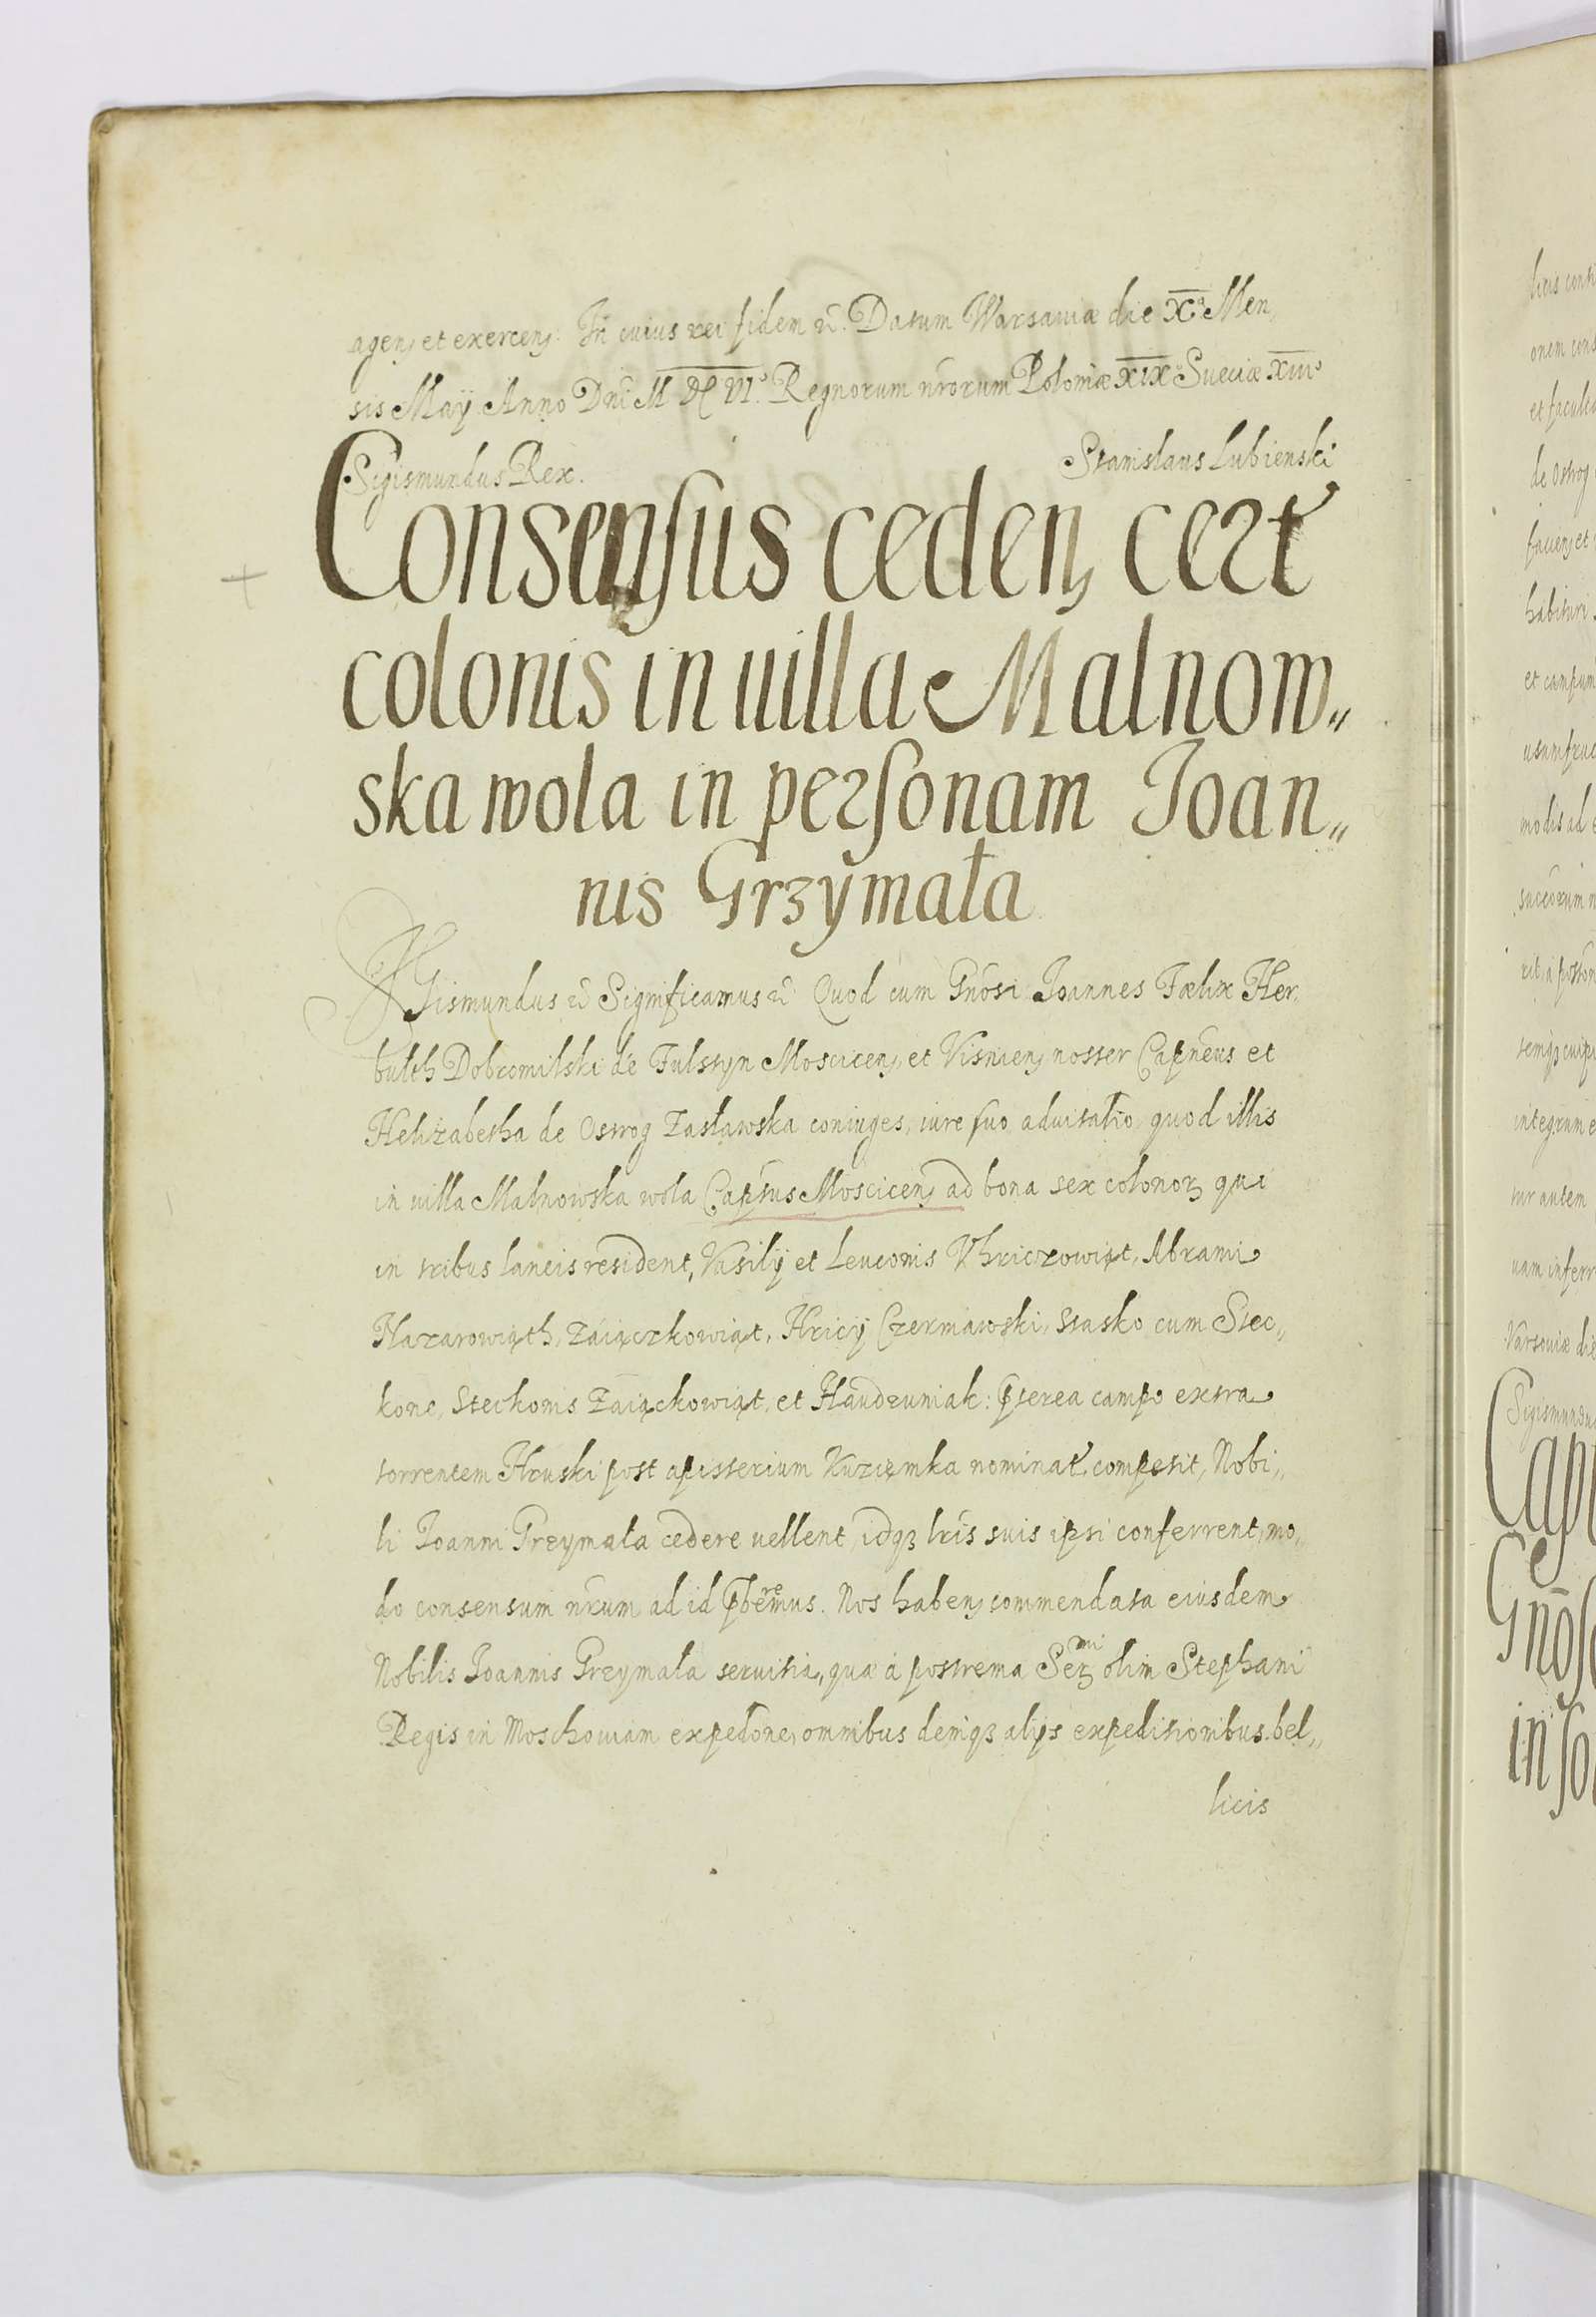 agen, et exercen, In cuius rei fidem ec̃. Datum Warsauiæ die X.ª Men,
sis Maÿ Anno Dnĩ M DC VI.º Regnorum nr̃orum Poloniæ XIX Sueciæ XIIIº
Sigismundus Rex.
Stanislaus Lubienski
Consensus ceden, cert̃
colonis in uilla Malnow„
ska wola in personam Ioan„
nis Grzÿmała
Sigismundus ec̃ Significamus ec̃ Quod cum Gnõsi Ioannes Fælix Her,
bulth Dobromilski de Fulstyn Moscicen, et Visnien, noster Capneus et
Helizabetha de Ostrog Zasławska coniuges, iure suo aduitatio, quod illis
in uilla Malnowska wola Captus Moscicen, ad bona sex colonoꝝ qui
in tribus laneis resident, Vasilÿ et Leuconis Vhriczowiąt, Abrami
Nazarowiąth, Zaiączkowiąt, Hricÿ Czerniawski, Stasko cum Stec„
kone, Stechonis Zaiąckowiąt, et Haudzuniak: p̃terea campo extra
torrentem Hruski post apisterium Kuziemka nominat̃ competit, Nobi„
li Ioanni Grzymała cedere uellent, idqꝫ lrĩs suis ipsi conferrent, mo„
do consensum nr̃um ad id p̃beremus. Nos haben, commendata eiusdem
Nobilis Ioannis Grzymała seruitia, quæ à postrema Serꝫmi olim Stephani
Regis in Moschouiam expedõne, omnibus deniqꝫ alÿs expeditionibus bel„
licis